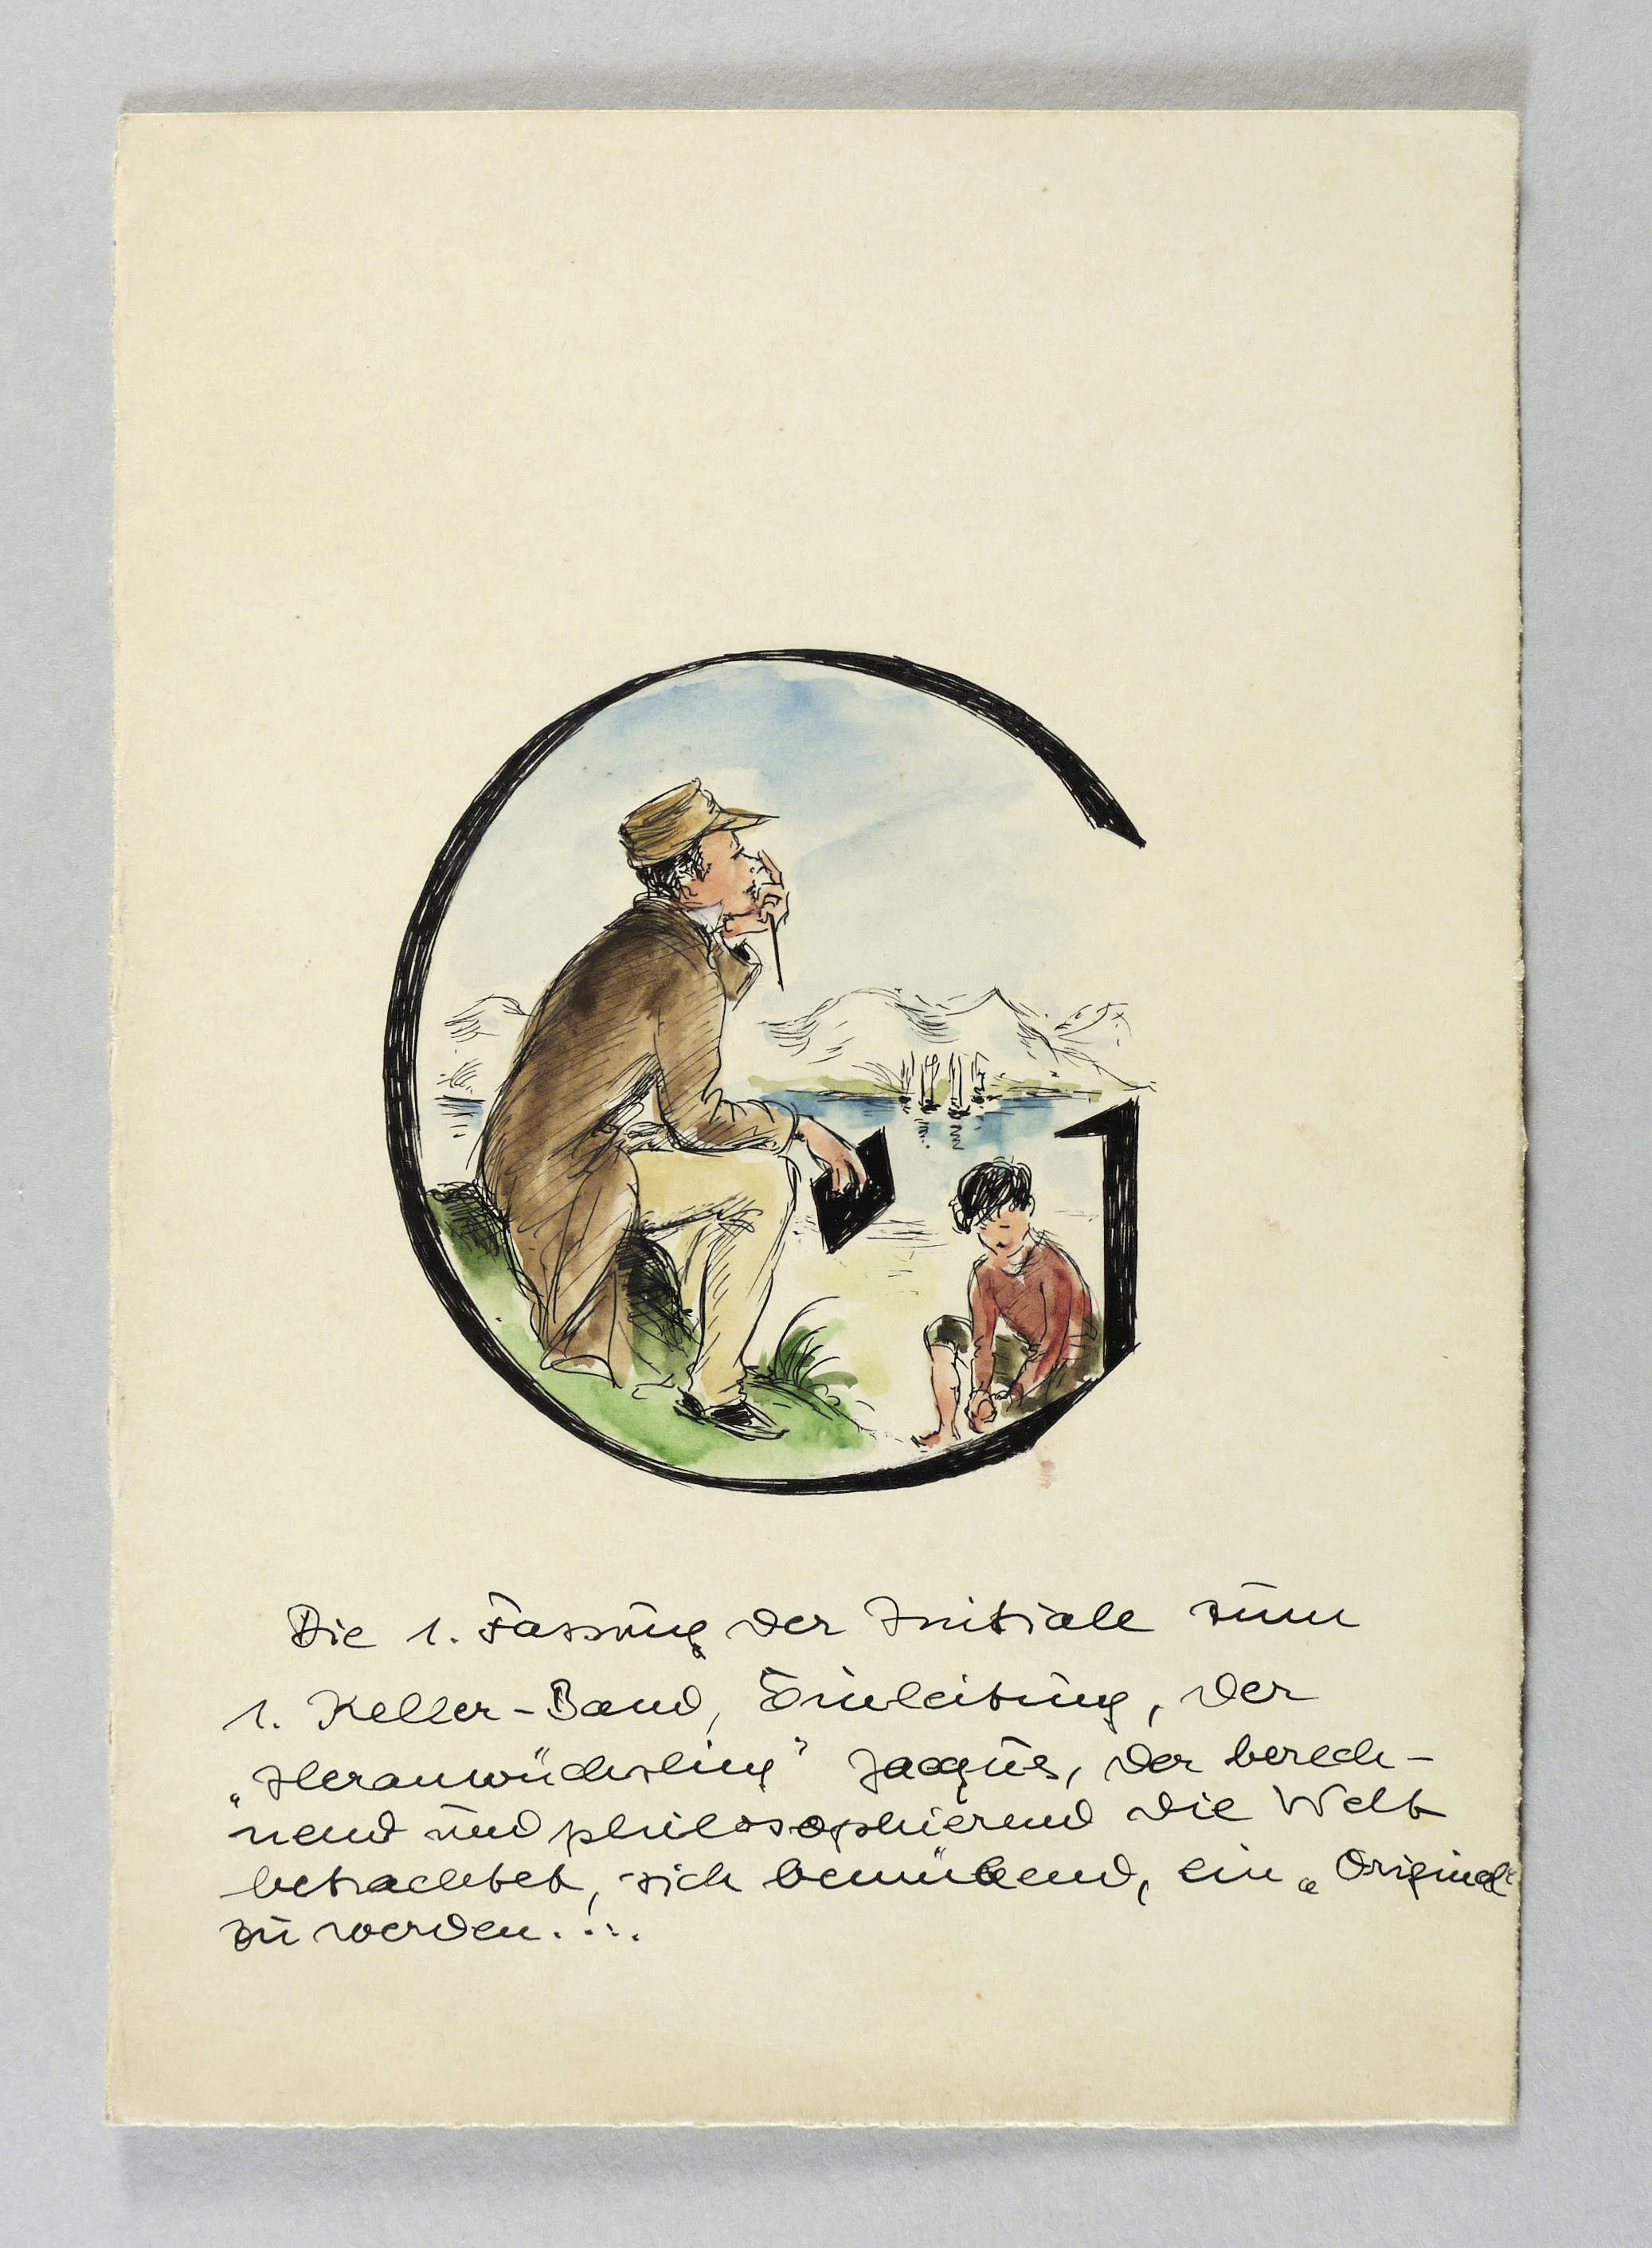 G
Die 1. Fassung der Initiale zum
1. Keller-Band, Einleitung, der
„Heranwüchsling" Jacques, der berech-
nend und philosophierend die Welt
betrachtet, sich bemühend, ein „Original"
zu werden....